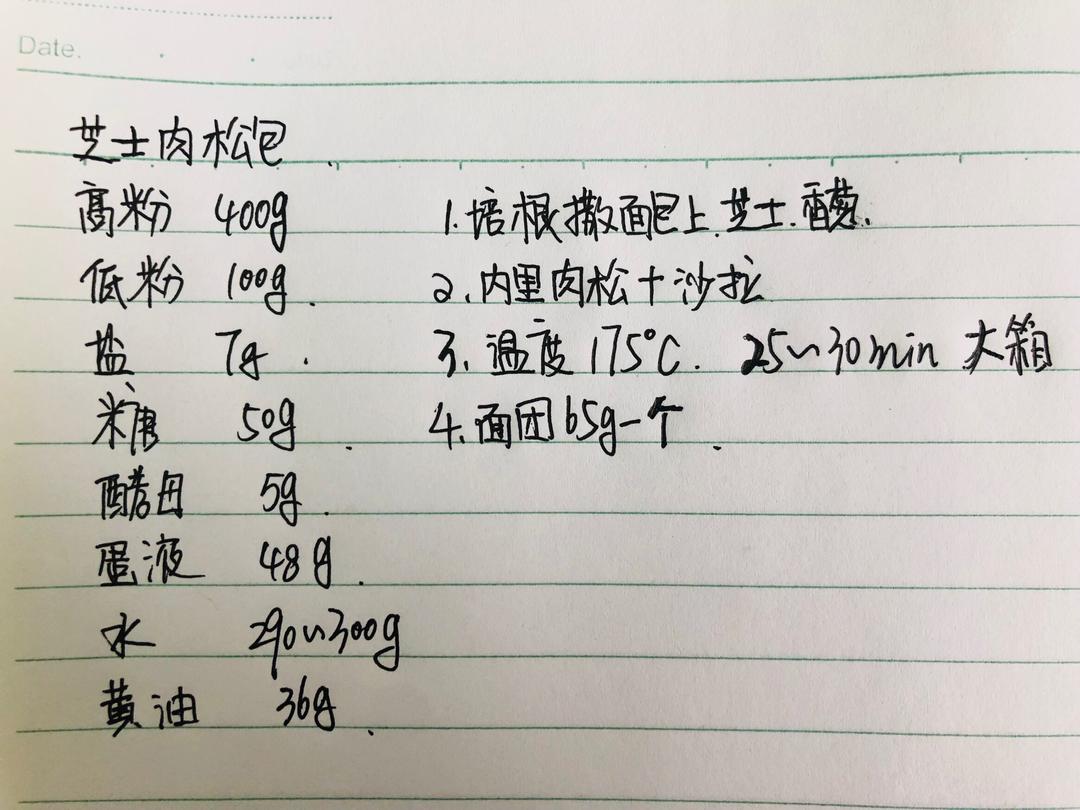 Date.
芝士肉松包.
高粉 400g
低粉 100g.
盐 7g.
糖 50g.
酵母 5g.
蛋液 48g.
水 290~300g
黄油 36g.
1.培根撒面包上.芝士.
2.内里肉松+沙拉
3.温度175°C. 25~30min 大箱
4.面团65g一个.